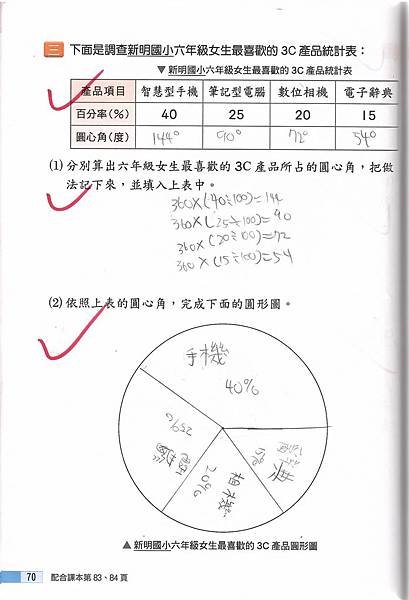 三 下面是調查新明國小六年級女生最喜歡的 3C 產品統計表：
▼ 新明國小六年級女生最喜歡的 3C 產品統計表
產品項目 智慧型手機 筆記型電腦 數位相機 電子辭典
百分率(%) 40 25 20 15
圓心角(度) 144° 90° 72° 54°
(1) 分別算出六年級女生最喜歡的 3C 產品所占的圓心角，把做
法記下來，並填入上表中。
360×(40÷100)=144
360×(25÷100)=90
360×(20÷100)=72
360×(15÷100)=54
(2) 依照上表的圓心角，完成下面的圓形圖。
手機
40%
25%
電腦
20%
相機
15%
▲ 新明國小六年級女生最喜歡的 3C 產品圓形圖
70 配合課本第 83、84 頁